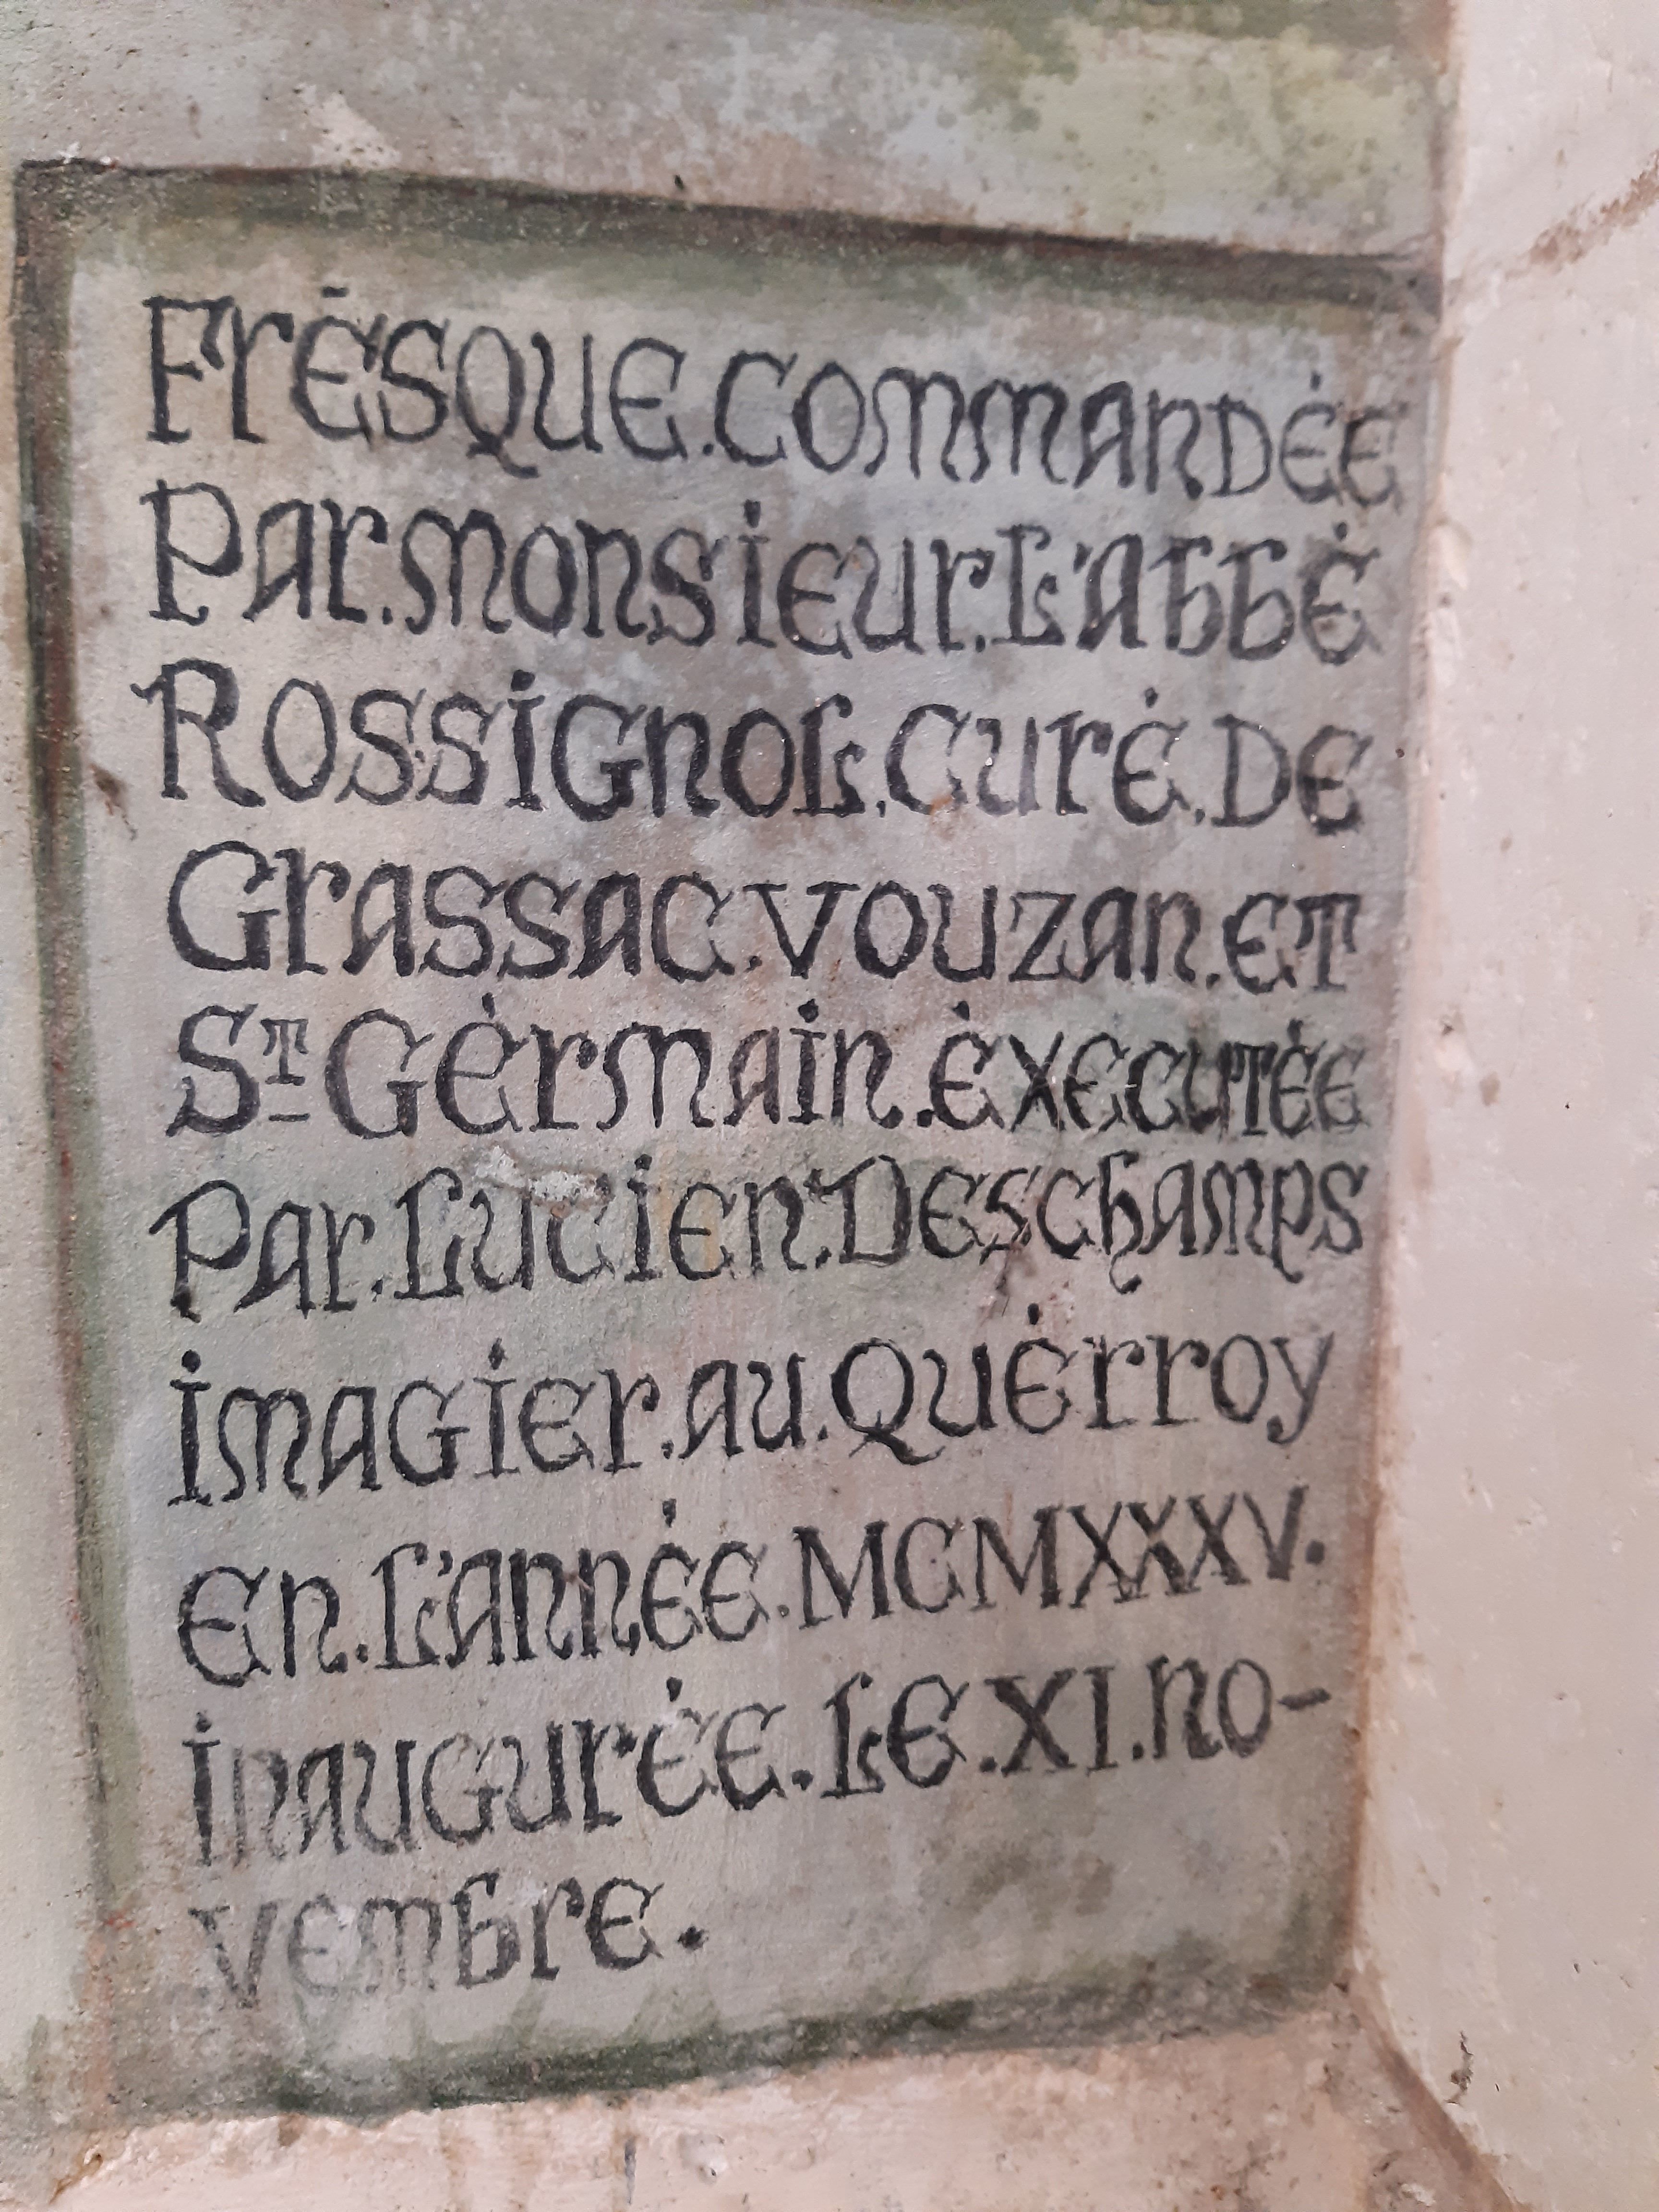 FrÉSQUE.COMMANDÉE
Par.monsieur.L'Abbé
Rossignol.Curé.DE
Grassac.Vouzan.ET
ST Gérmain.ÉXECUTÉE
Par.Lucien.Deschamps
imagier.au.Quérroy
En.L'année.MCMXXXV.
inaugurée.LE.XI.no-
vembre.